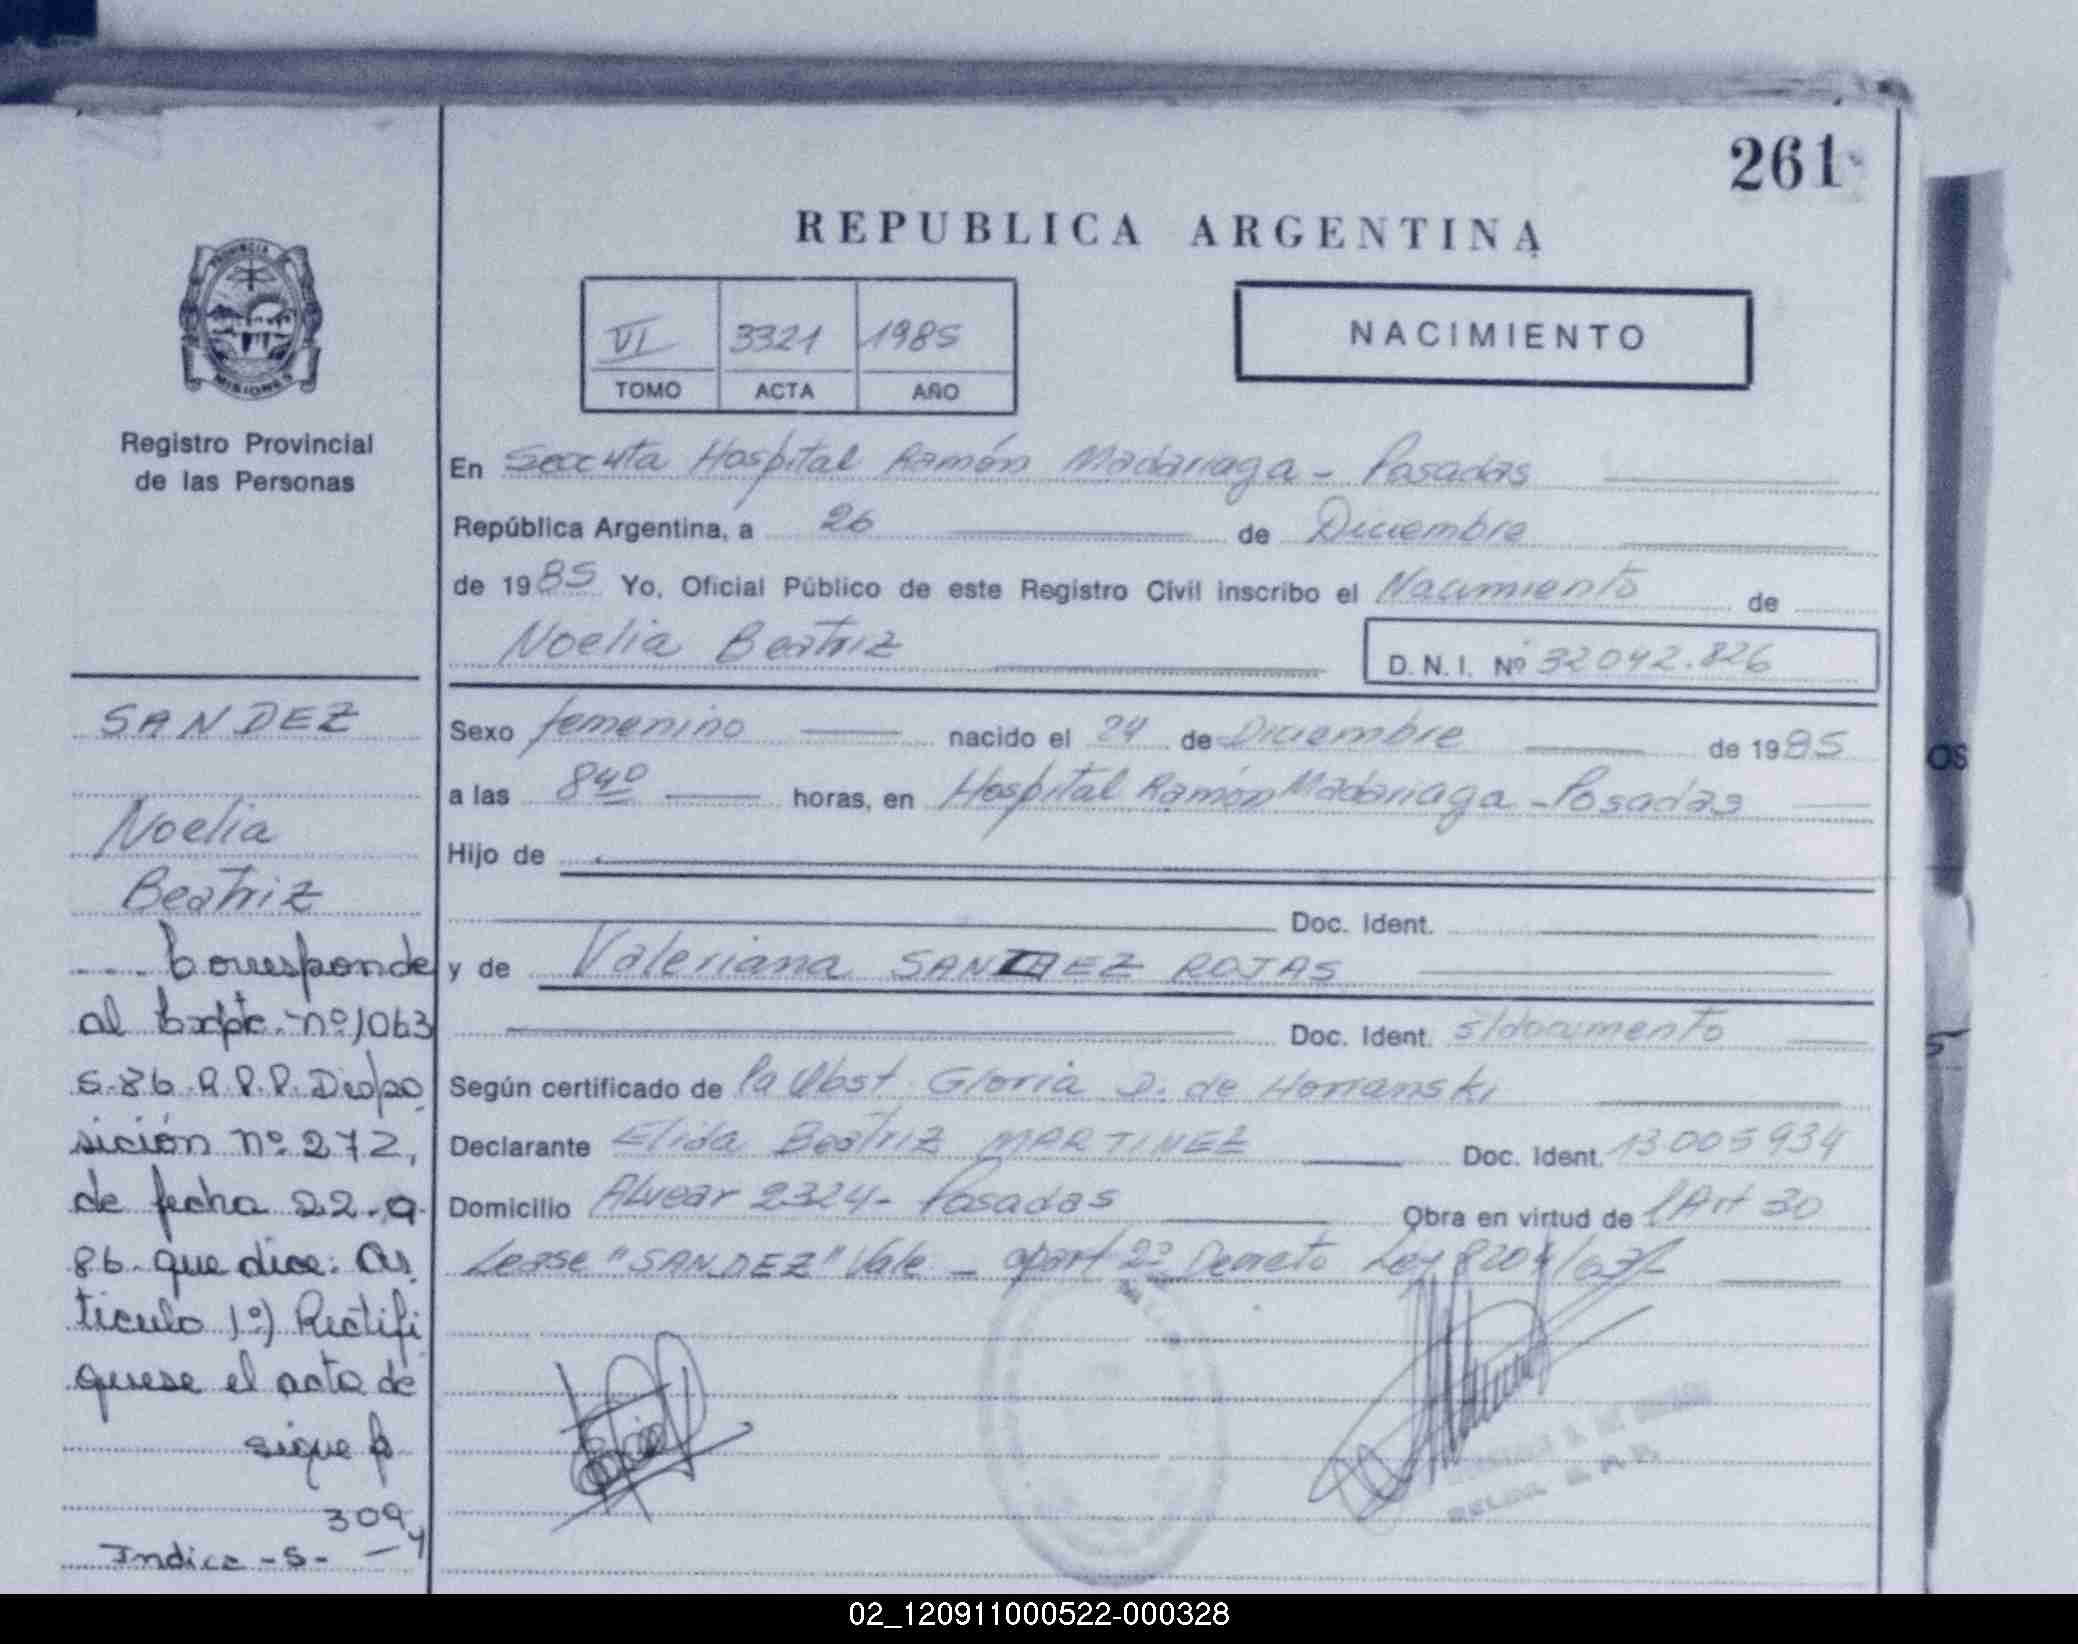 261
REPUBLICA ARGENTINA
PROVINCIA
MISIONES
Registro Provincial
de las Personas
VI 3321 1985
TOMO ACTA AÑO
NACIMIENTO
En Hospital Ramón Madariaga - Posadas
República Argentina, a 26 de Diciembre
de 1985 Yo, Oficial Público de este Registro Civil inscribo el Nacimiento de
Noelia Beatriz D.N.I. Nº 32042.826
Sexo femenino nacido el 24 de Diciembre de 1985
a las 8 40 horas, en Hospital Ramón Madariaga - Posadas
Hijo de
Doc. Ident.
y de Valeriana SANDEZ ROJAS
Doc. Ident. s/documento
Según certificado de la Obst Gloria D. de
Declarante Elida Beatriz MARTINEZ Doc. Ident. 13005934
Domicilio Alvear 2324 - Posadas Obra en virtud de l'Art 30
Lease "SANDEZ" Vale - apart 2º Decreto Ley 8204/63
SANDEZ
Noelia
Beatriz
Corresponde
al Expte. nº 1063
S-86 R.P.P. Dispo
sición nº 272,
de fecha 22-9-
86 que dice: Ar
ticulo 1º) Rectifi
quese el acta de
sigue f
309
Indice - S -
OS
5
02_120911000522-000328